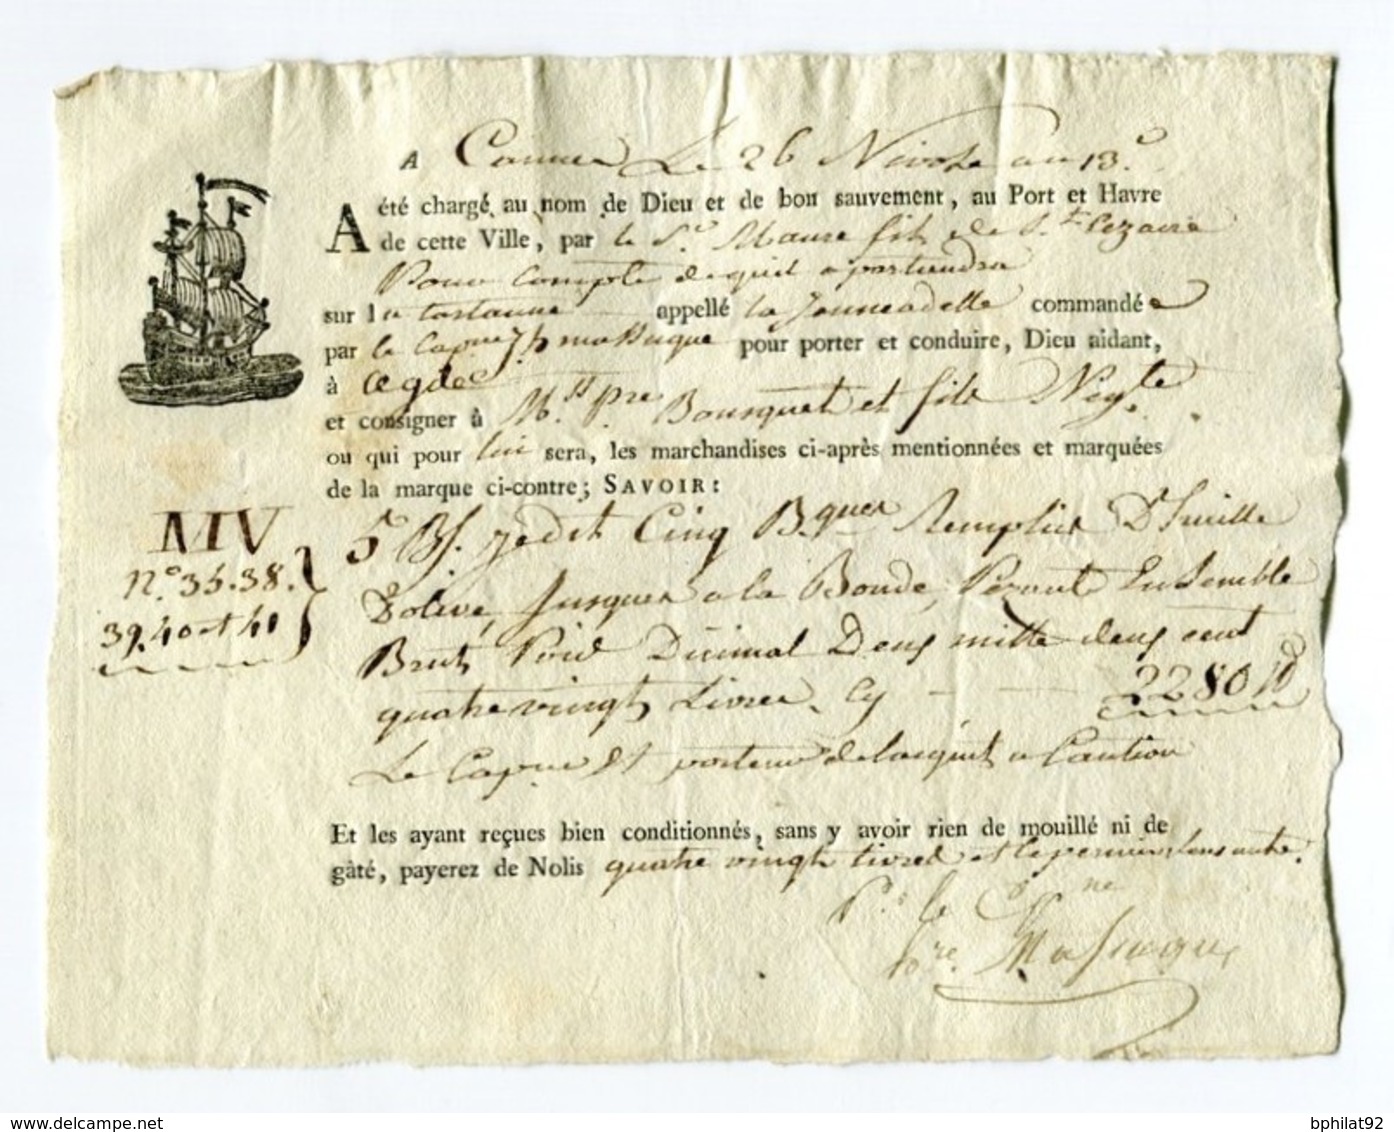 A Cannes Le 26 Nivose an 13.e
A été chargé au nom de Dieu et de bon sauvement, au Port et Havre
de cette Ville, par le S.r Maure fils de S.t Cezaire
Pour Compte de qui il apartiendra
sur la tartanne appellé la commandé
par le Capne pour porter et conduire, Dieu aidant,
à agde
et consigner à M.rs pre Bousquet et fils Neg.te
ou qui pour lui sera, les marchandises ci-après mentionnées et marquées
de la marque ci-contre; SAVOIR:
MV
N.o 35. 38.
39. 40 et 41
5 B/. Cinq B.ques Remplies D'huille
D'olive, Jusques a la Bonde, Pesant Ensemble
Brut Poid Décimal Deux mille deux cent
quatre vingt Livres. Cy - - 2280
Le Capne Et porteur de lacquit a Caution
Et les ayant reçues bien conditionnés, sans y avoir rien de mouillé ni de
gâté, payerez de Nolis quatre vingt livres et
P.r le Cap.ne
bphilat92